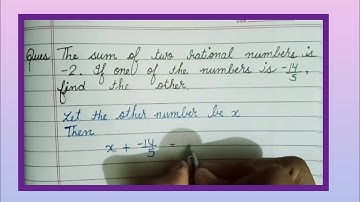 Ques The sum of two rational numbers is
-2. If one of the numbers is -14/5,
find the other.
Let the other number be x
Then
x + -14/5 =